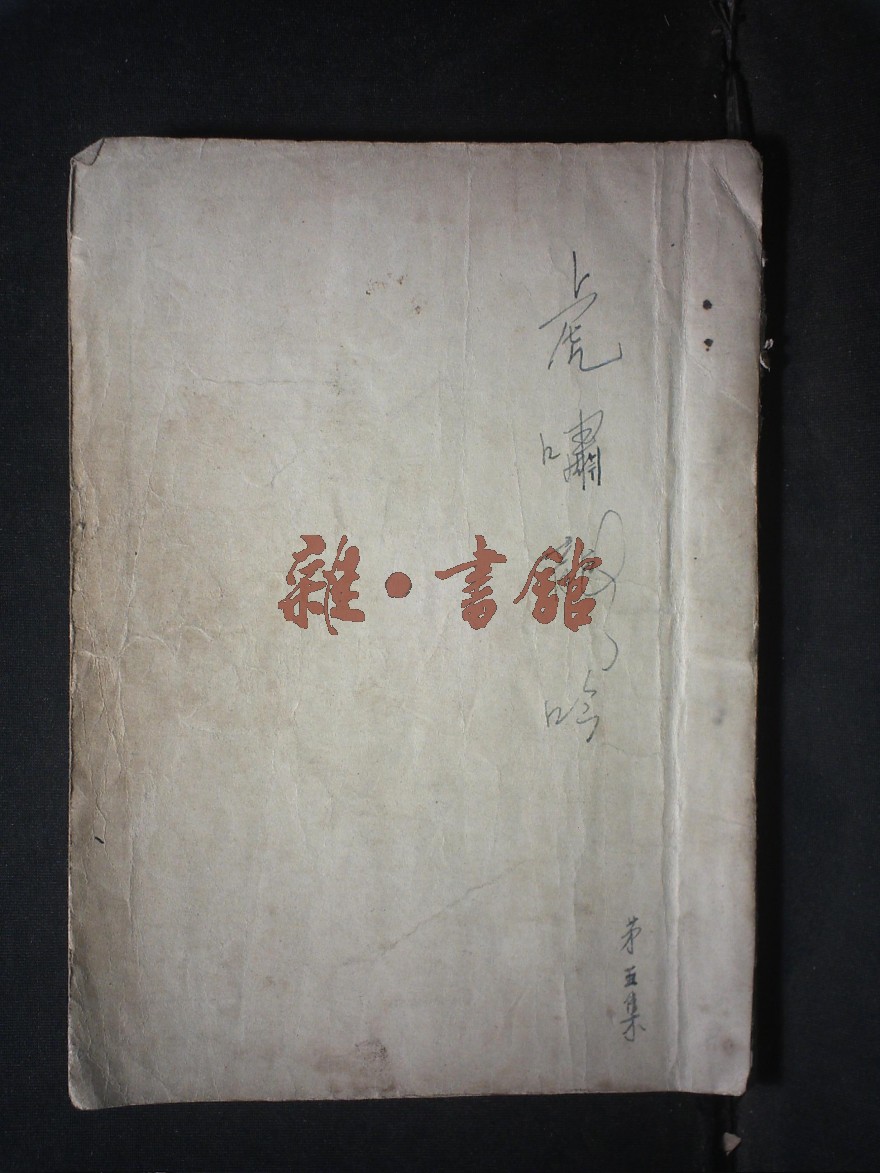 虎嘯吟
雜·書館
第五集